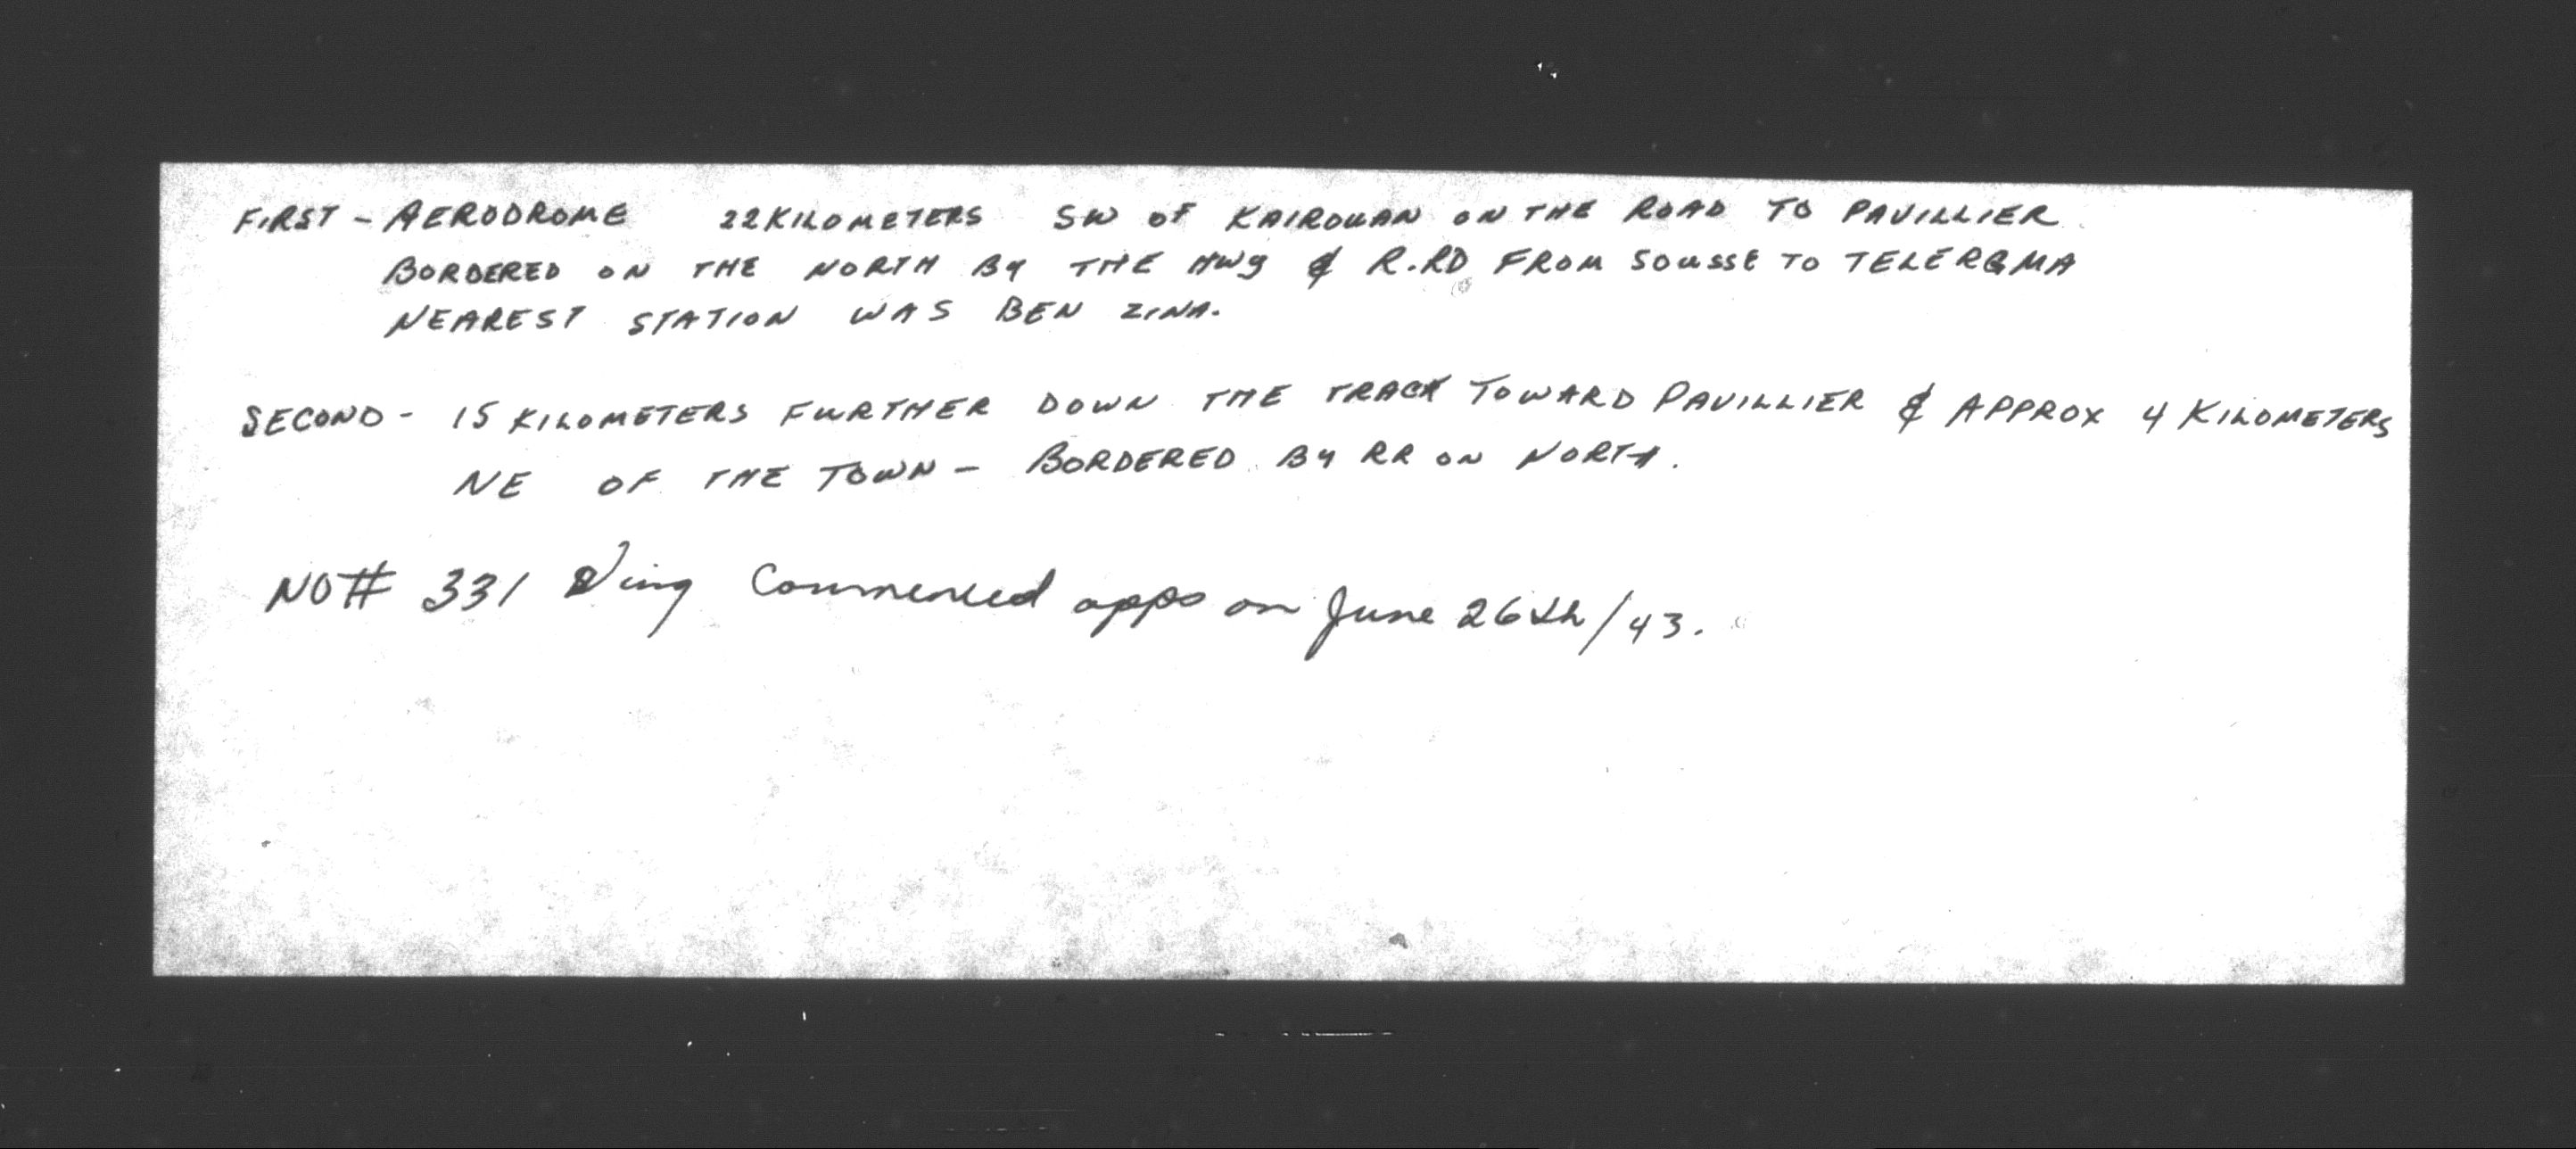 FIRST - AERODROME 22 KILOMETERS SW OF KAIROUAN ON THE ROAD TO PAVILLIER
BORDERED ON THE NORTH BY THE HWY & R.RD FROM SOUSSE TO TELERGMA
NEAREST STATION WAS BEN ZINA.
SECOND - 15 KILOMETERS FURTHER DOWN THE TRACK TOWARD PAVILLIER & APPROX 4 KILOMETERS
NE OF THE TOWN - BORDERED BY RR ON NORTH.
NO# 331 Wing Commenced opps on June 26th/43.